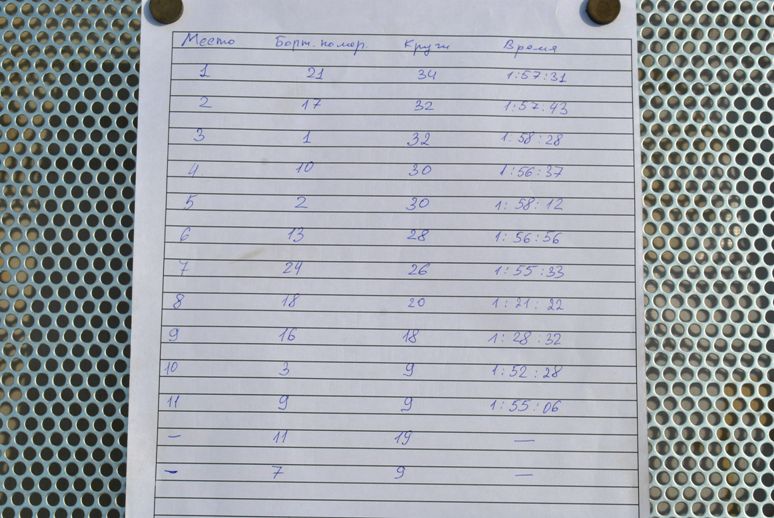 Место Борт. номер. Круги Время
1 21 34 1:57:31
2 17 32 1:57:43
3 1 32 1:58:28
4 10 30 1:56:37
5 2 30 1:58:12
6 13 28 1:56:56
7 24 26 1:55:33
8 18 20 1:21:22
9 16 18 1:28:32
10 3 9 1:52:28
11 9 9 1:55:06
— 11 19 —
— 7 9 —